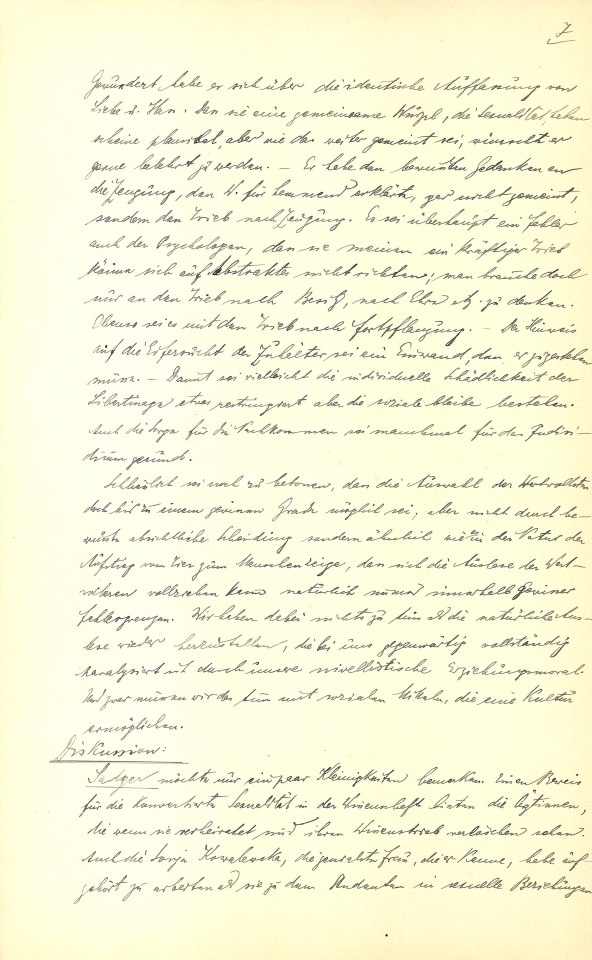 7
Gewundert habe er sich über die identische Auffassung von
Liebe u. Hass. Dass sie eine gemeinsame Wurzel, die Sexualität, haben
scheine plausibel, aber wie das weiter gemeint sei, wünscht er
gerne belehrt zu werden. — Er habe den bewussten Gedanken an
die Zeugung, den W. für hemmend erklärte, gar nicht gemeint,
sondern den Trieb nach Zeugung. Es sei überhaupt ein Fehler
auch der Psychologen, dass sie meinen ein kräftiger Trieb
könne sich auf Abstraktes nicht richten; man brauche doch
nur an den Trieb nach Besitz, nach Ehre etz. zu denken.
Ebenso sei es mit dem Trieb nach Fortpflanzung. — Der Hinweis
auf die Eifersucht der Zuhälter sei ein Einwand, den er zugestehen
müsse. — Damit sei vielleicht die individuelle Schädlichkeit der
Libertinage etwas restringiert aber die soziale bleibe bestehen.
Auch die Sorge für die Nachkommen sei manchmal für das Indivi-
duum gesund.
Schliesslich sei noch zu betonen, dass die Auswahl der Wertvollsten
doch bis zu einem gewissen Grade möglich sei, aber nicht durch be-
wusste absichtliche Scheidung sondern ähnlich wie in der Natur der
Aufstieg vom Tier zum Menschen zeige, dass sich die Auslese der Wert-
volleren vollziehen kann natürlich immer innerhalb gewisser
Fehlergrenzen. Wir haben dabei nichts zu tun als die natürliche Aus-
lese wieder herzustellen, die bei uns gegenwärtig vollständig
paralysiert ist durch unsere nivellistische Erziehungsmoral.
Und zwar müssen wir das tun mit sozialen Mitteln, die eine Kultur
ermöglichen.
Diskussion:
Sadger möchte nur ein paar Kleinigkeiten bemerken. Einen Beweis
für die konvertierte Sexualität in der Wissenschaft bieten die Ärztinnen,
die wenn sie verheiratet sind ihren Wissenstrieb verlöschen sehen.
Auch die Sonja Kowalewska, die genialste Frau, die er kenne, habe auf-
gehört zu arbeiten als sie zu dem in sexuelle Beziehungen